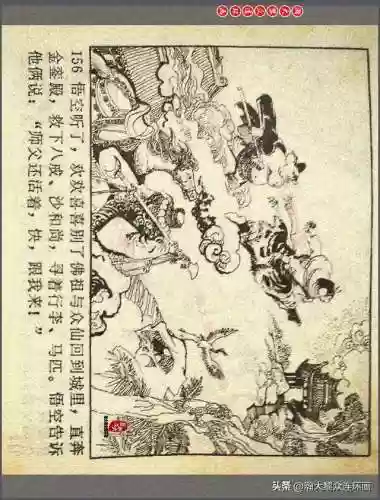 瀚大聚众连环画
156 悟空听了，欢欢喜喜别了佛祖与众仙回到城里，直奔
金銮殿，救下八戒、沙和尚，寻着行李、马匹。悟空告诉
他俩说：“师父还活着，快，跟我来！”
头条 @瀚大聚众连环画